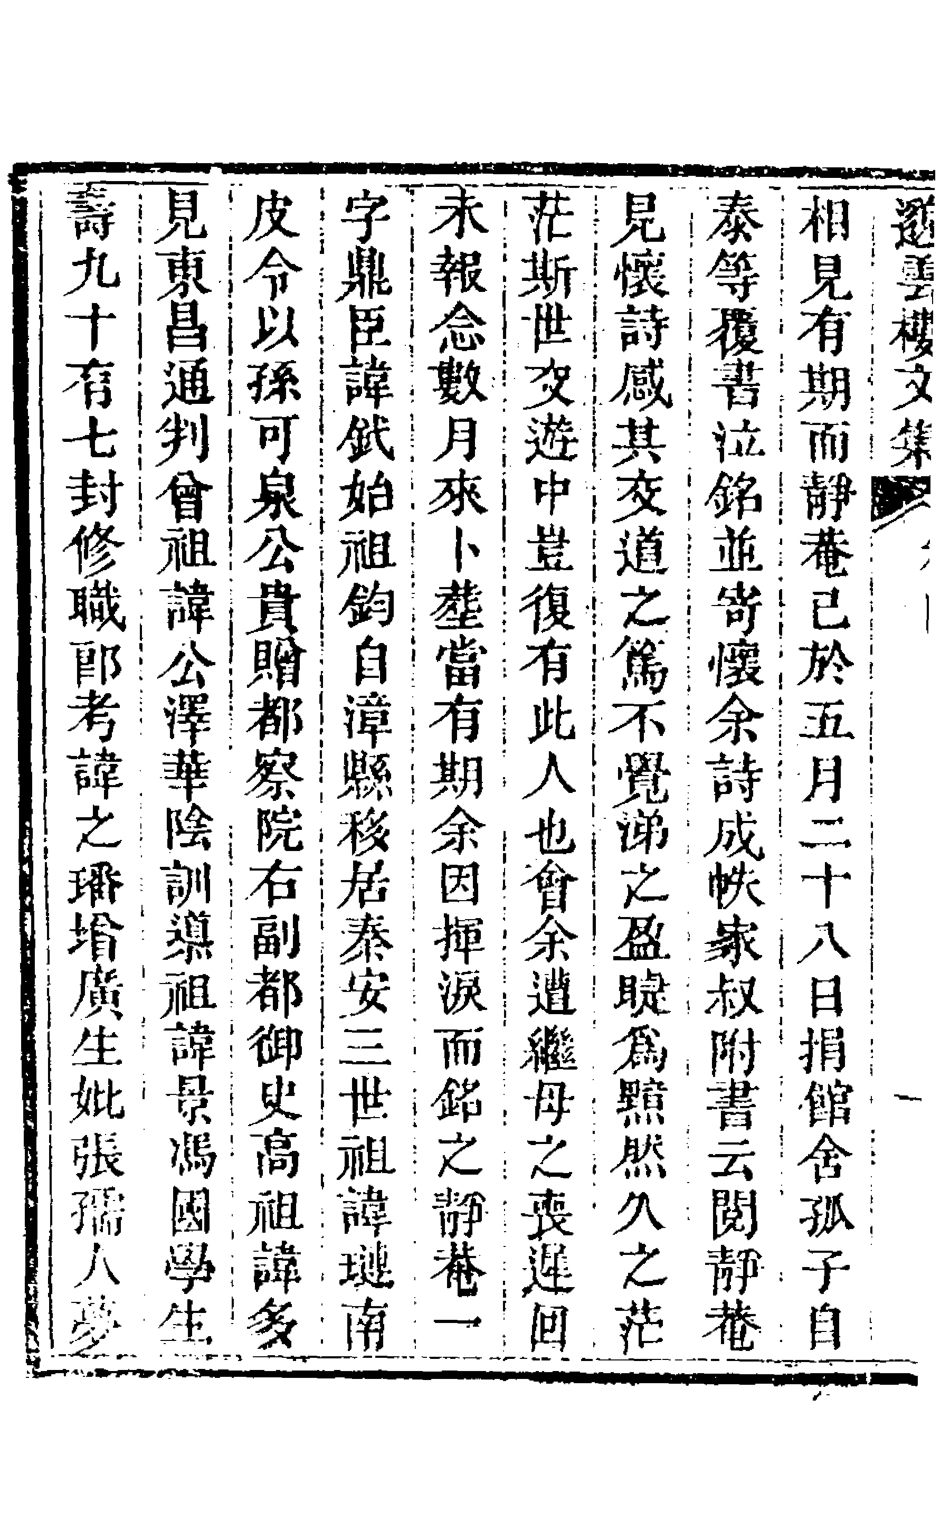 遊雲樓文集
相見有期而靜菴已於五月二十八日捐館舍孤子自
泰等覆書泣銘並寄懷余詩成帙家叔附書云閱靜菴
見懷詩感其交道之篤不覺涕之盈睫爲黯然久之茫
茫斯世交遊中豈復有此人也會余遭繼母之喪遲回
未報念數月來卜塟當有期余因揮淚而銘之靜菴一
字鼎臣諱鉽始祖鈞自漳縣移居泰安三世祖諱璉南
皮令以孫可泉公貴贈都察院右副都御史高祖諱多
見東昌通判曾祖諱公澤華陰訓導祖諱景馮國學生
壽九十有七封修職郎考諱之璠增廣生妣張孺人夢